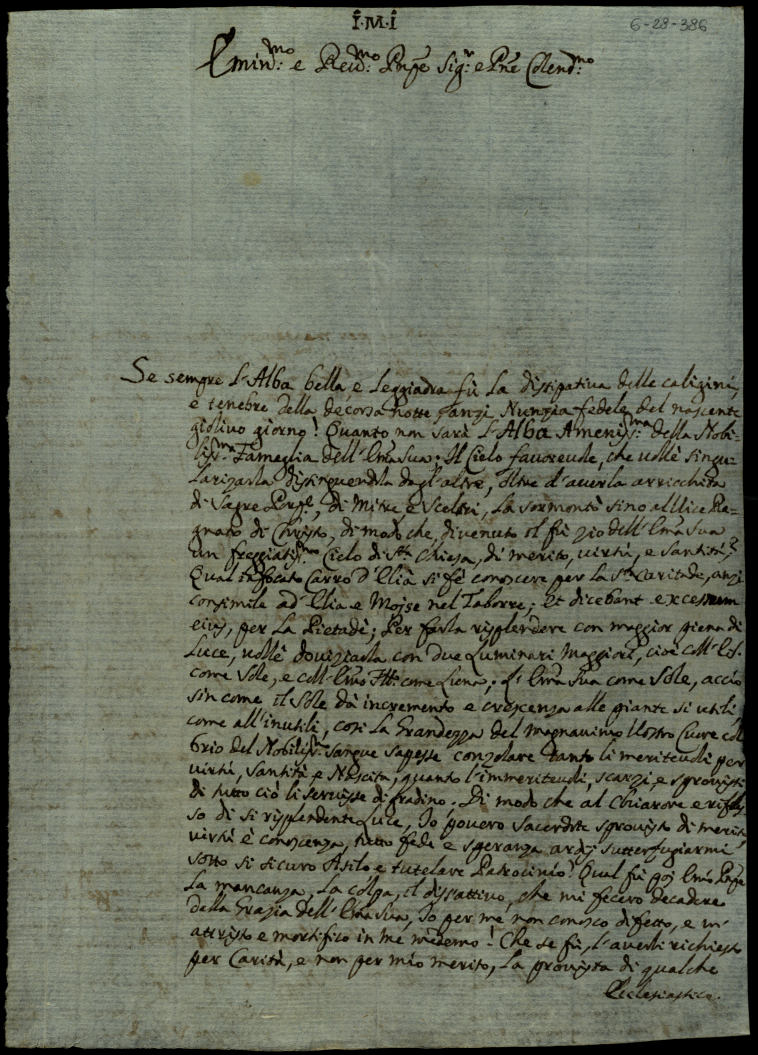 I·M·I
6-29-386
Emin:mo e Rev:mo Pnpe Sig:r e Pne Colend:mo
Se sempre l'Alba bella e leggiadra fù la dissipativa delle caligini,
e tenebre della decorsa notte, anzi Nunzia fedele del nascente
giolivo giorno! Quanto non sarà l'Alba Ameniss:ma della Nobi-
liss:ma Fameglia dell'Ema Sua: Il Cielo favorevole, che volle singu-
larizarla distinguendola dagl'altre, oltre d'averla arricchita
di Sagre Porp:e, di Mitre, e Scetri, la sormontò sino all Vice Re-
gnato di Christo, di modo che, divenuto il fù zio dell'Ema Sua
un freggiatiss:mo Cielo di S:ta Chiesa, di merito, virtù, e Santità,
Qual infocato Carro d'Elia si fè conoscere per la S:ta Caritade, anzi
consimile ad'Elia e Mojse nel Taborre; et dicebant excessum
eius, per la Pietade; Per farla risplendere con maggior piena di
Luce, volle doviziarla con due Luminari Maggiori, cioè coll'
come Sole, e coll'Emo come Luna; L'Ema Sua come Sole, acciò
sin come il Sole dà incremento e crescenza alle piante sì utili,
come all'inutili, così la Grandezza del magnanimo Vostro Cuore col
brio del Nobiliss:mo Sangue sapesse consolare tanto li meritevoli per
virtù, Santità e Nascita, quanto l'immeritevoli, scarzi, e sprovisti
di tutto ciò li servisse di gradino. Di modo che al Chiarore e rifles-
so di si risplendente Luce, Io povero Sacerdote sprovisto di merito
virtù e conoscenza, tutto fede e speranza ardij sutterfugiarmi
sotto si sicuro Asilo e tutelare Patrocinio! Qual fù poi Emo Pnpe
la mancanza, la colpa, il disattivo, che mi fecero decadere
dalla Grazia dell'Ema Sua, Io per me non conosco difetto, e m'
attristo e mortifico in me medemo! Che se fù, l'averli richiesto
per Carità, e non per mio merito, la provista di qualche
Ecclesiastica